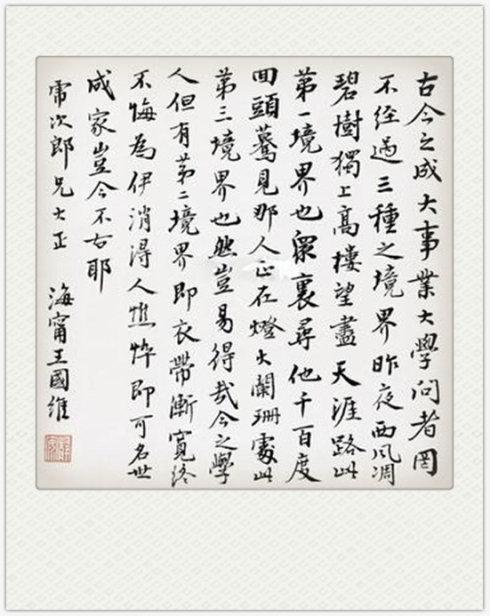 古今之成大事業大學問者罔
不經過三種之境界昨夜西風凋
碧樹獨上高樓望盡天涯路此
第一境界也眾裏尋他千百度
回頭驀見那人正在燈火闌珊處此
第三境界也然豈易得哉今之學
人但有第二境界即衣帶漸寬終
不悔為伊消得人憔悴即可名世
成家豈今不古耶
次郎兄大正
海甯王國維